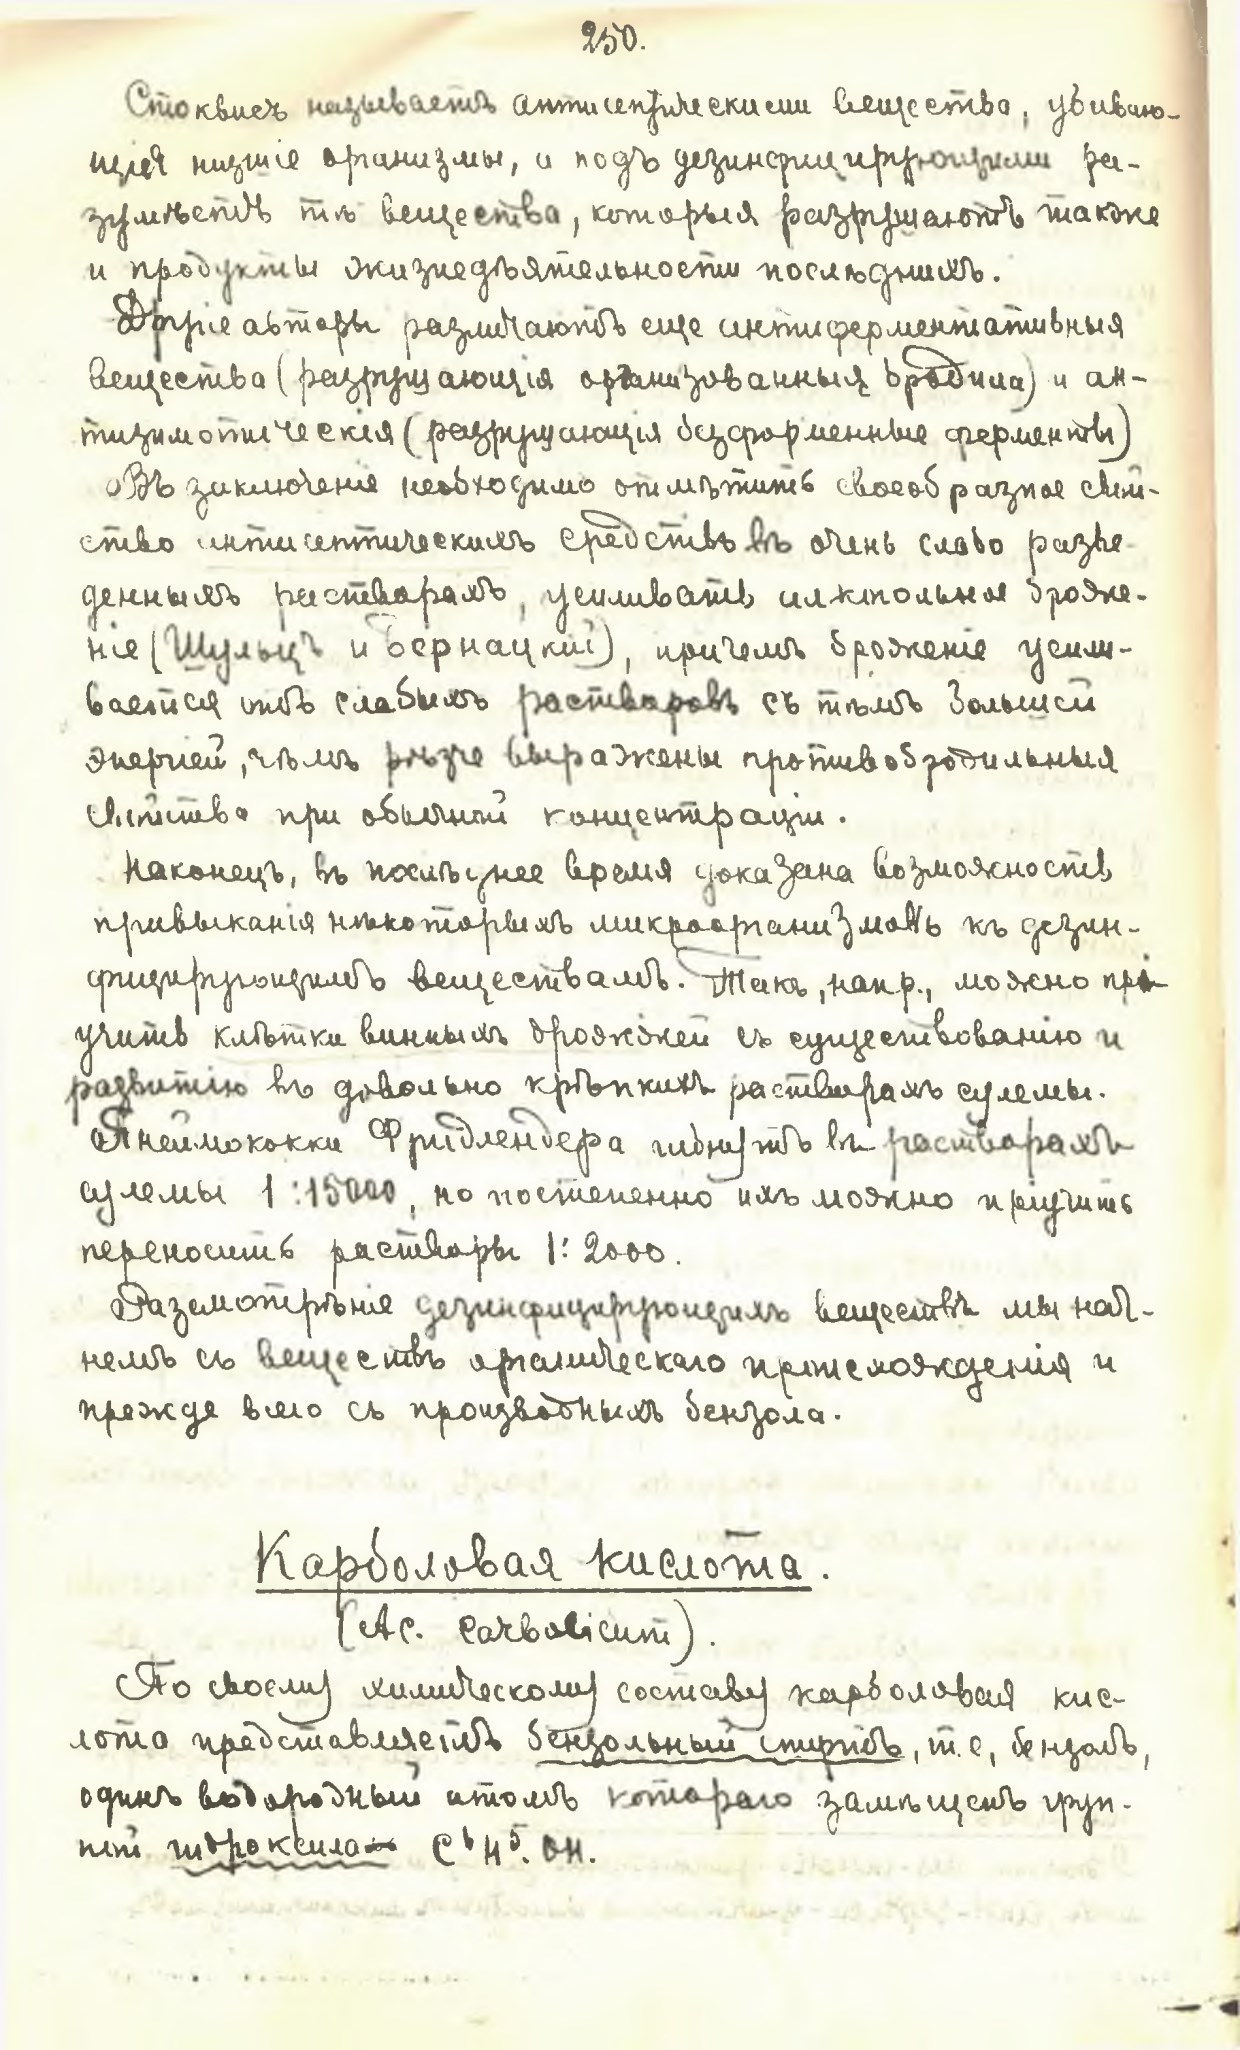 250.
Стоквисъ называетъ антисептическими вещества, убиваю-
щія низшіе организмы, а подъ дезинфицирующими ра-
зумѣетъ тѣ вещества, которыя разрушаютъ также
и продукты жизнедѣятельности послѣднихъ.
Другіе авторы различаютъ еще антиферментативныя
вещества (разрушающія организованныя бродила) и ан-
тизимотическія (разрушающія безформенные ферменты)
Въ заключеніе необходимо отмѣтить своеобразное свой-
ство антисептическихъ средствъ въ очень слабо разве-
денныхъ растворахъ, усиливать алкогольное броже-
ніе (Шульцъ и Бернацкій), причемъ броженіе усили-
вается отъ слабыхъ растворовъ съ тѣмъ большей
энергіей, чѣмъ рѣзче выражены противобродильныя
свойства при обычной концентраціи.
Наконецъ, въ послѣднее время доказана возможность
привыканія нѣкоторыхъ микроорганизмовъ къ дезин-
фицирующимъ веществамъ. Такъ, напр., можно прі-
учить клѣтки винныхъ дрожжей къ существованію и
развитію въ довольно крѣпкихъ растворахъ сулемы.
Пнеймококки Фридлендера гибнутъ въ растворахъ
сулемы 1:15000, но постепенно ихъ можно пріучить
переносить растворы 1:2000.
Разсмотрѣніе дезинфицирующихъ веществъ мы нач-
немъ съ веществъ органическаго происхожденія и
прежде всего съ производныхъ бензола.
Карболовая кислота.
(Ac. carbolicum).
По своему химическому составу карболовая кис-
лота представляетъ бензольный спиртъ, т.е, бензолъ,
одинъ водородный атомъ котораго замѣщенъ груп-
пой гидроксила C⁶H⁵.OH.